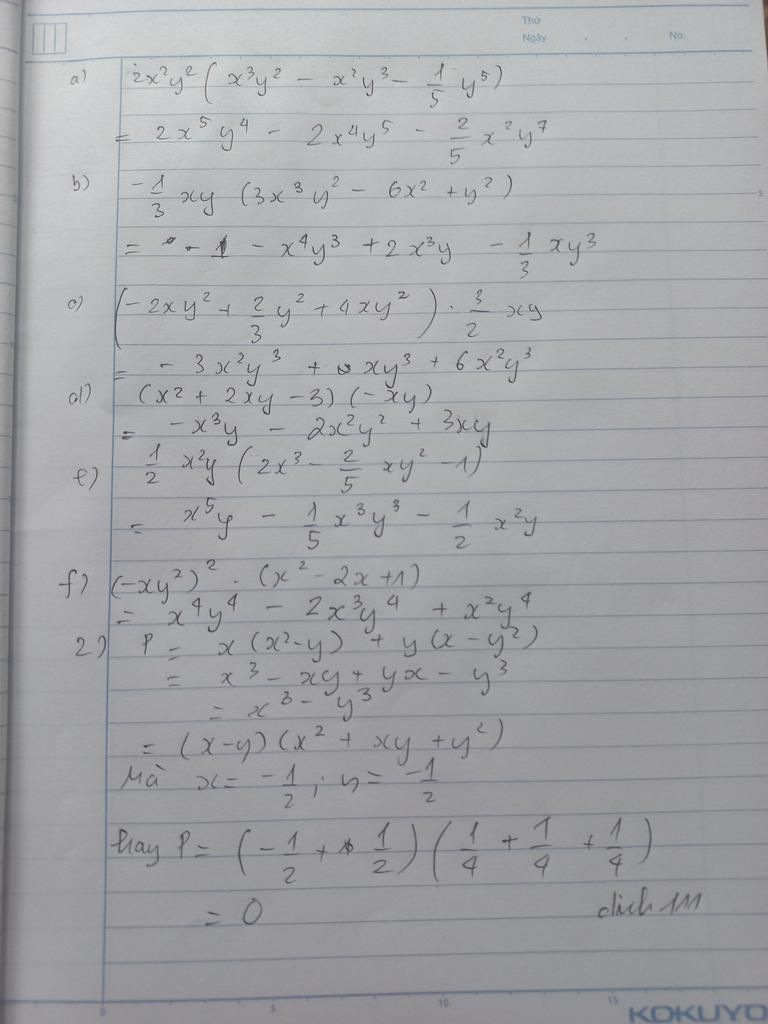 Thứ
Ngày . . No.
a) 2x²y² ( x³y² - x²y³ - 1/5 y⁵)
= 2x⁵y⁴ - 2x⁴y⁵ - 2/5 x²y⁷
b) -1/3 xy (3x³y² - 6x² + y²)
= - x⁴y³ + 2x³y - 1/3 xy³
c) (-2xy² + 2/3 y² + 4xy²) . 3/2 xy
= - 3x²y³ + xy³ + 6x²y³
d) (x² + 2xy - 3) (-xy)
= -x³y - 2x²y² + 3xy
e) 1/2 x²y (2x³ - 2/5 xy² - 1)
= x⁵y - 1/5 x³y³ - 1/2 x²y
f) (-xy²)² . (x² - 2x + 1)
= x⁴y⁴ - 2x³y⁴ + x²y⁴
2) P = x (x² - y) + y (x - y²)
= x³ - xy + yx - y³
= x³ - y³
= (x-y) (x² + xy + y²)
Mà x = -1/2 ; y = -1/2
hay P = (-1/2 + 1/2) (1/4 + 1/4 + 1/4)
= 0
0 5 10 15
KOKUYO